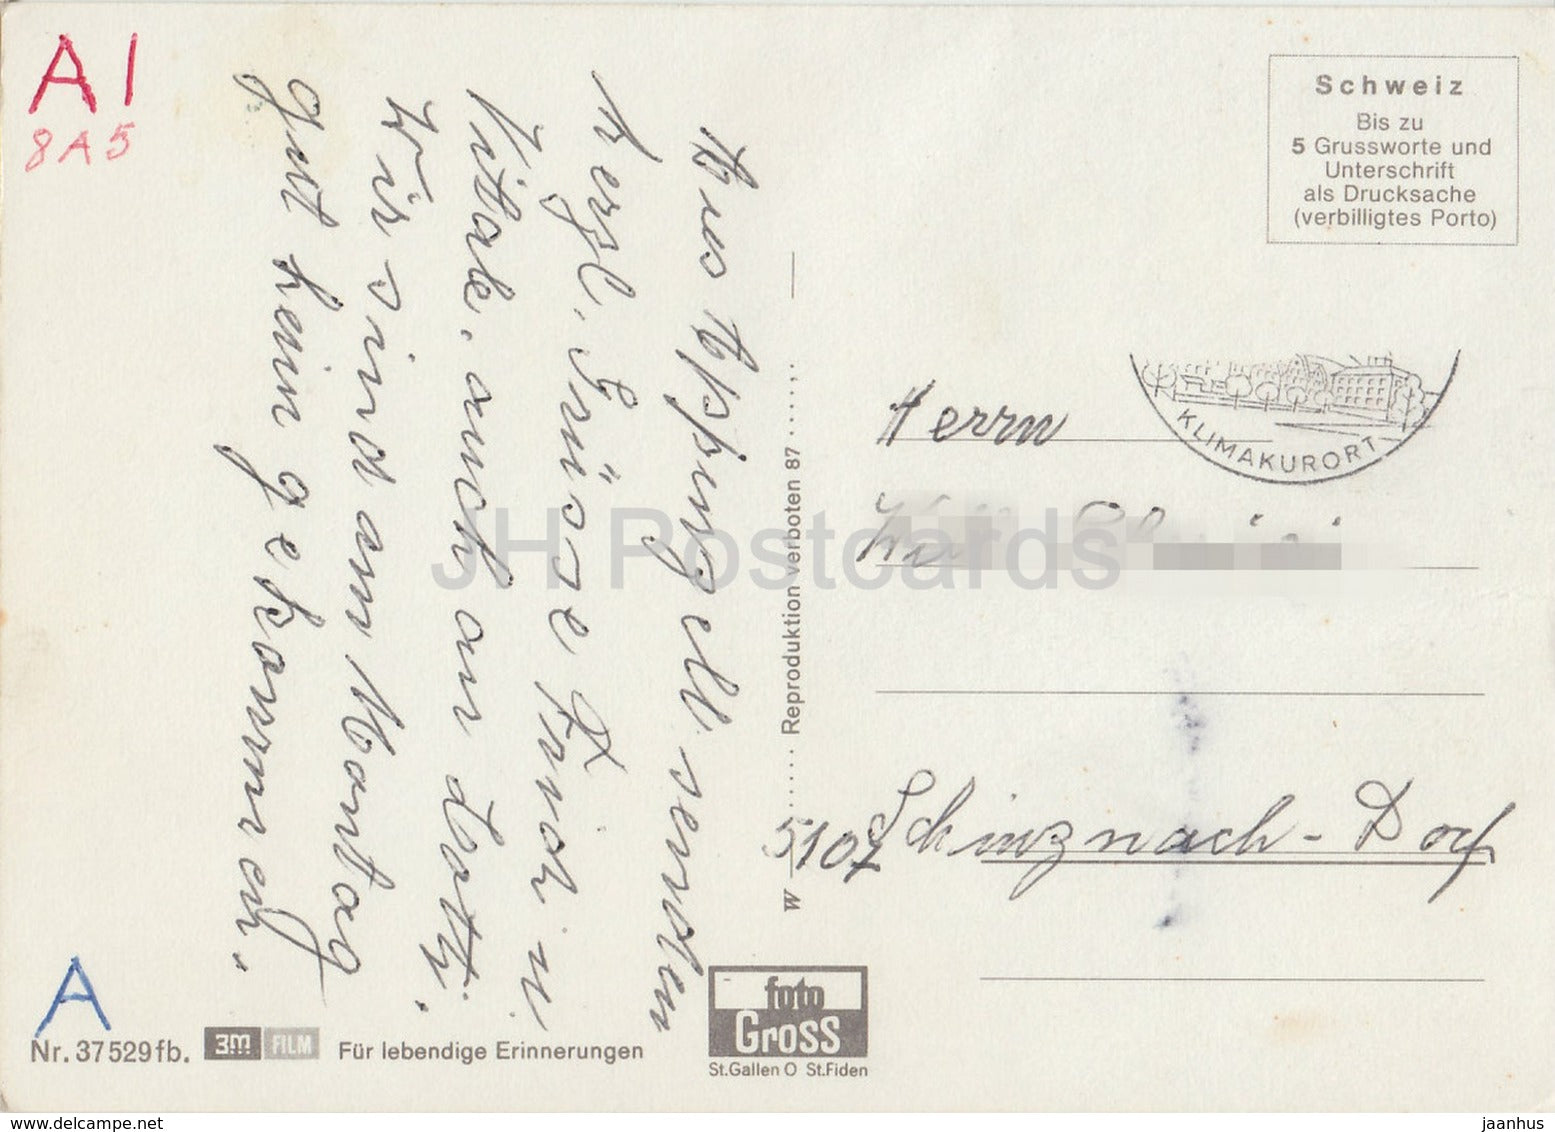 A1
8A5
Aus Appenzell senden
herzl. Grüsse Erich u
Vitale, auch an Dratti.
Wir sind am Montag
gut heim gekommen.
A
Nr. 37529fb.
3M FILM
Für lebendige Erinnerungen
foto
Gross
St.Gallen O St.Fiden
W
Reproduktion verboten 87
Schweiz
Bis zu
5 Grussworte und
Unterschrift
als Drucksache
(verbilligtes Porto)
KLIMAKURORT
Herrn
5107 Schinznach-Dorf
JH Postcards
delcampe.net
jaanhus